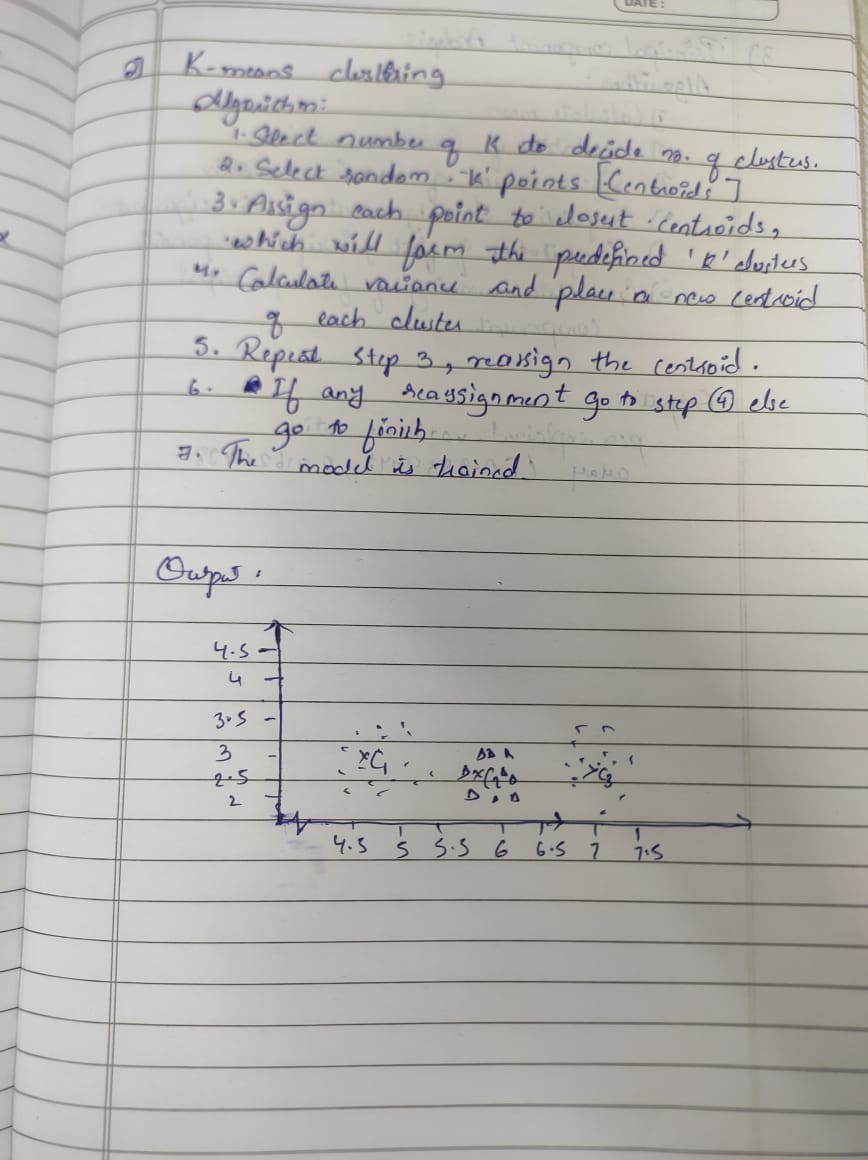 DATE:
2) K-means clustering
Algorithm:
1. Select number of K to decide no. of clusters.
2. Select random 'K' points [Centroids]
3. Assign each point to closest centroids,
which will form the predefined 'K' clusters
4. Calculate variance and place a new centroid
of each cluster
5. Repeat step 3, reassign the centroid.
6. If any reassignment go to step (4) else
go to finish
7. The model is trained.
Output.
4.5
4
3.5
3
2.5
2
xC1
xC2
xC3
4.5 5 5.5 6 6.5 7 7.5